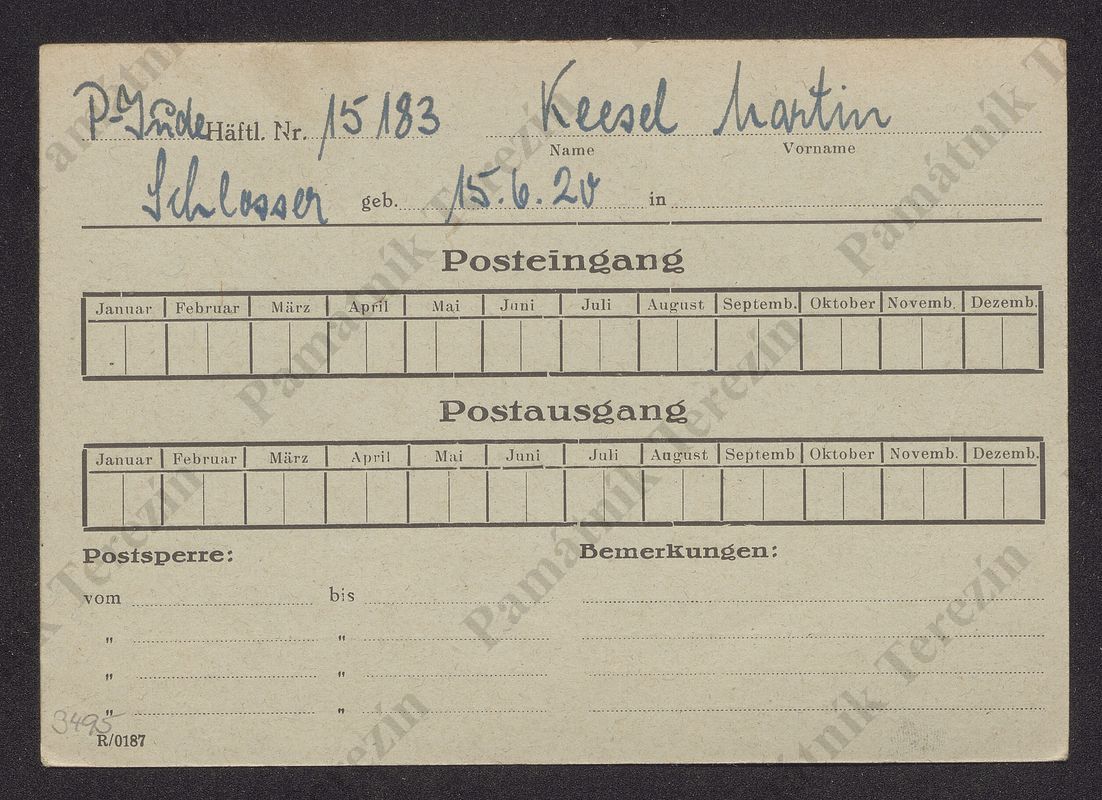 P-Jude Häftl. Nr. 15183 Keesel Martin
Name Vorname
Schlosser geb. 15.6.20 in
Posteingang
Januar Februar März April Mai Juni Juli August Septemb. Oktober Novemb. Dezemb.
Postausgang
Januar Februar März April Mai Juni Juli August Septemb Oktober Novemb. Dezemb.
Postsperre: Bemerkungen:
vom bis
" "
" "
" "
3495
R/0187
Památník Terezín